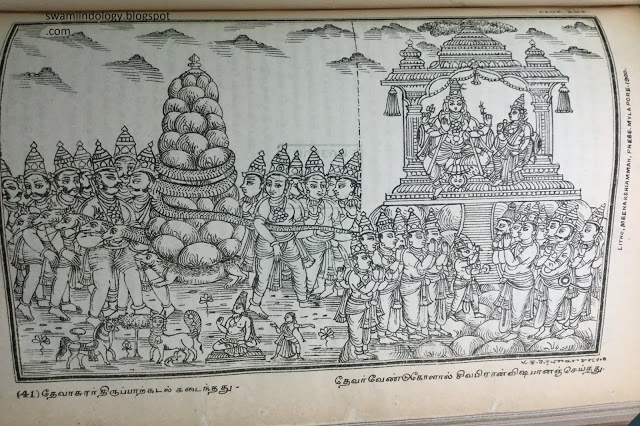 swamiindology.blogspot
.com
LITHO, MEENAKSHIAMMAH, PRESS, MYLAPORE. 1900.
(41) தேவாசுரர் திருப்பாற்கடல் கடைந்தது -
தேவர்வேண்டுகோளால் சிவபிரான்விஷபானஞ்செய்தது.